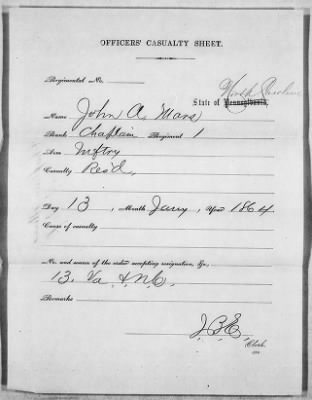 OFFICERS' CASUALTY SHEET.
Regimental No.
North Carolina
State of Pennsylvania,
Name John A. Mars
Rank Chaplain Regiment 1
Arm Inftry
Casualty Res'd,
Day 13, Month Jany, Year 1864
Cause of casualty
No. and source of the order accepting resignation, &c.
13. Va & N.C.
Remarks
J.B.E.
Clerk.